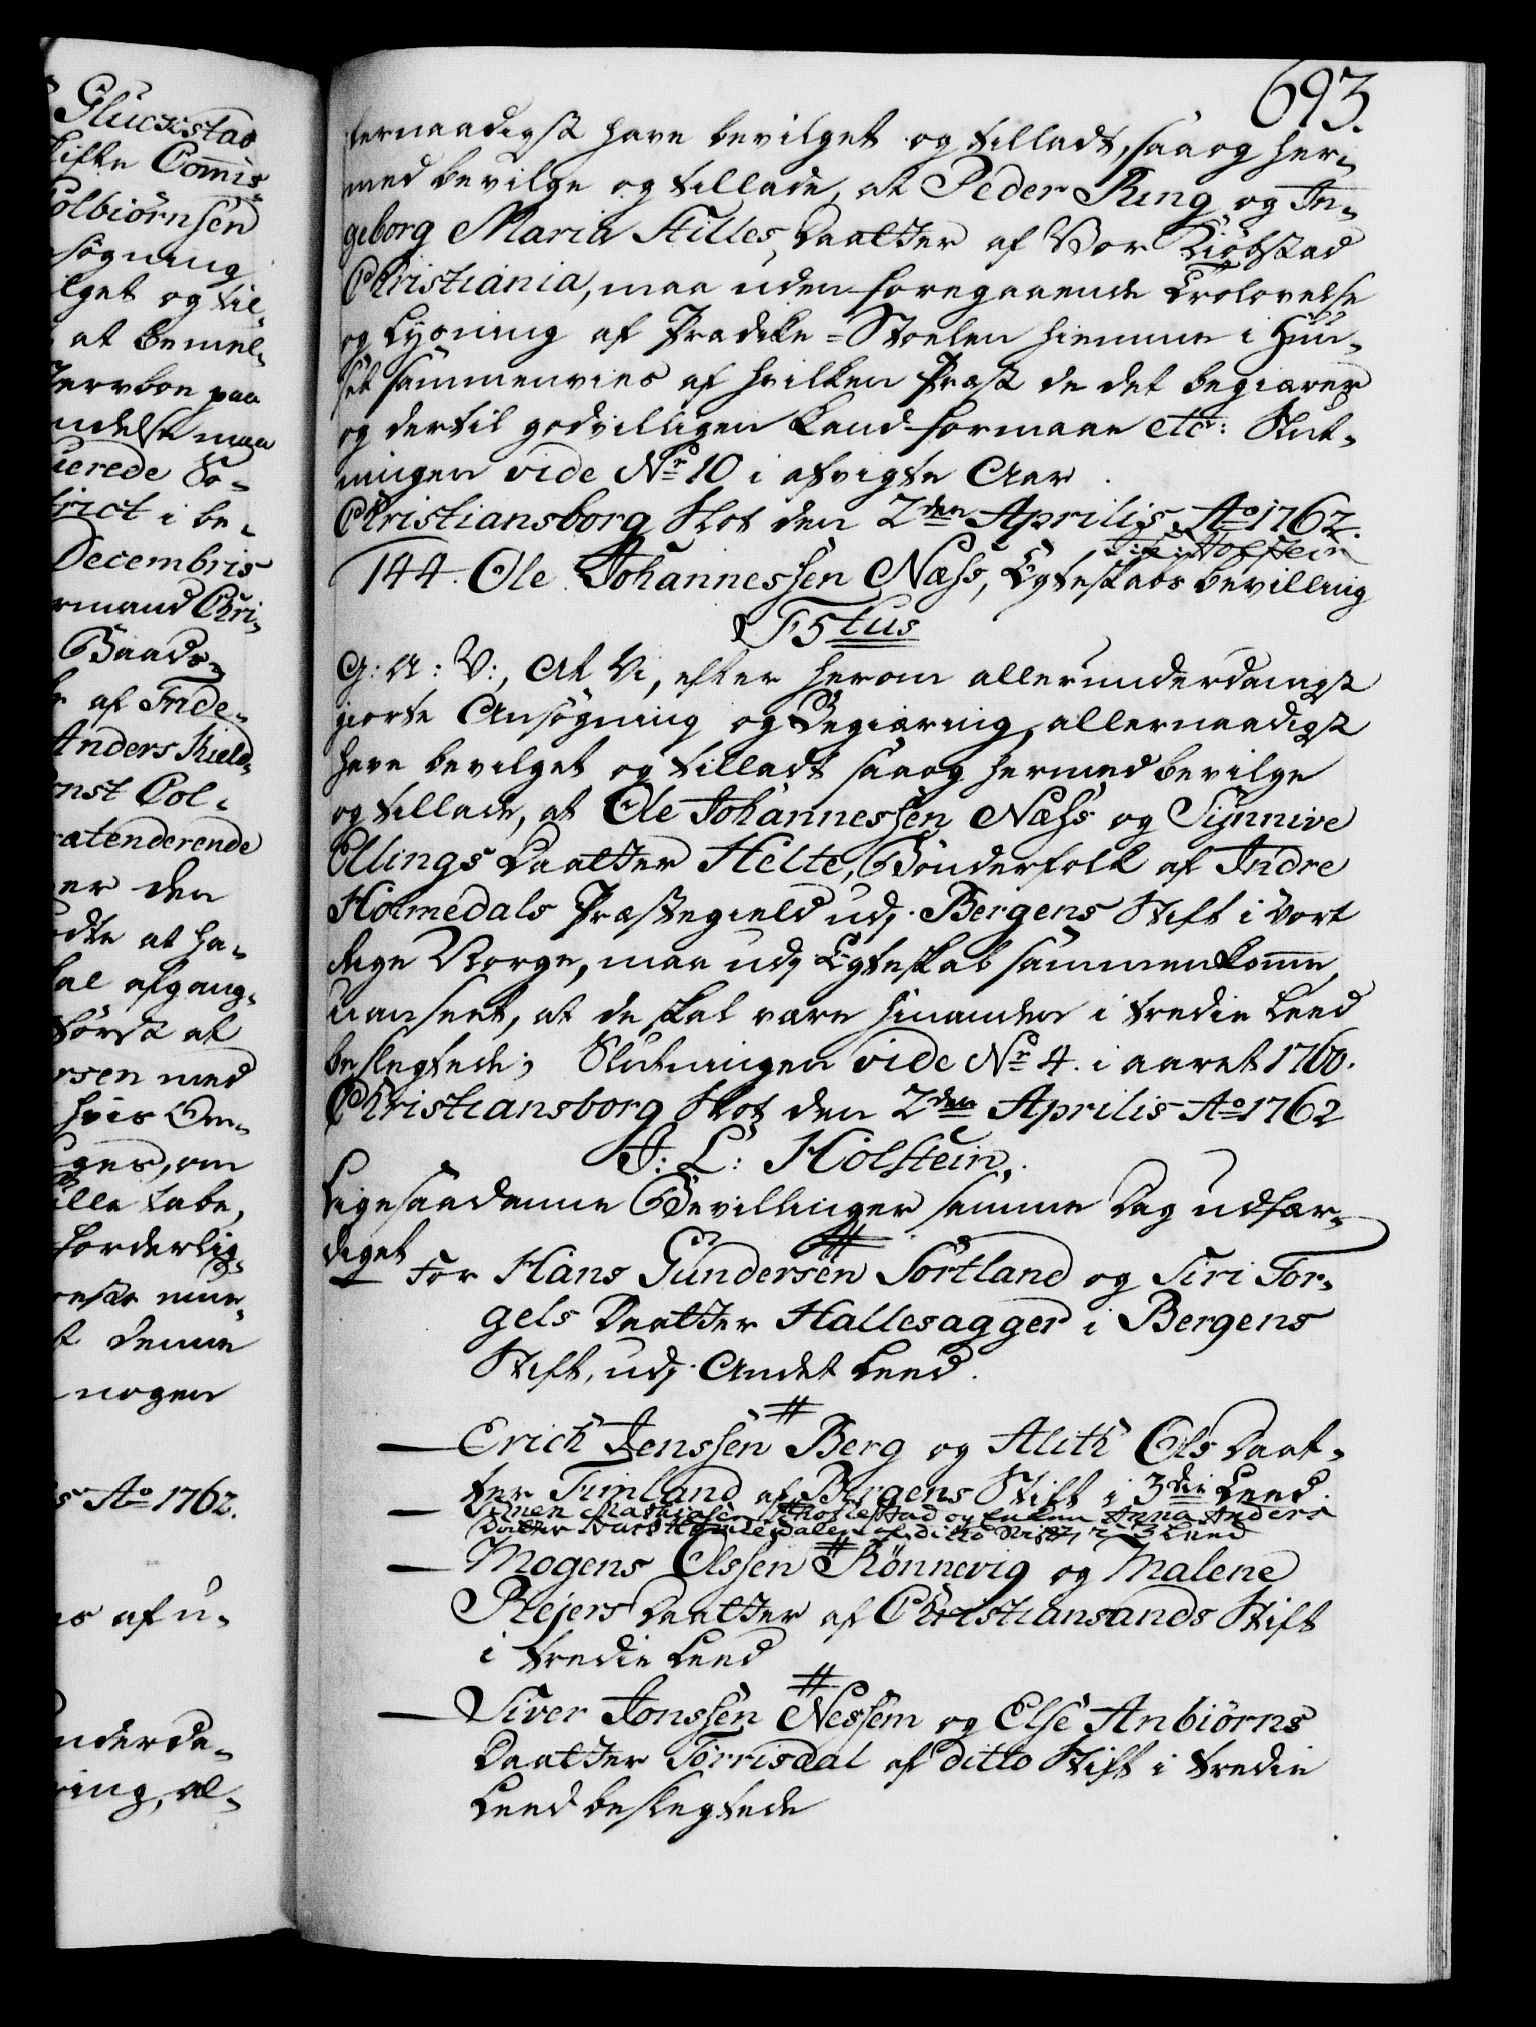 693.
lernaadigst have bevilget og tilladt, saa og her-
med bevilge og tillade, at Peder Ring og In-
geborg Maria Stilles Daatter af Vor Kiøbstad
Christiania, maa uden foregaaende Trolovelse
og Lysning af Prædike=Stoelen hiemme i Huu-
set sammenvies af hvilken Præst de det begiærer
og dertil godvilligen kand formaae etc: Slut-
ningen vide No 10 i afvigte Aar.
Christiansborg Slot den 2den Aprilis Ao 1762.
J: L: Holstein
144. Ole Johannessen Næss, Egteskabs bevilling
F5tus
G: A: V:, At Vi, efter herom allerunderdanigst
giorte Ansøgning og Begiæring, allernaadigst
have bevilget og tilladt saa og hermed bevilge
og tillade, at Ole Johannessen Næss og Siynnive
Ellings Daatter Helte, Bønderfolk af Indre
Holmedals Præstegield udj Bergens Stift i Vort
Rige Norge, maa udj Egteskab sammenkomme,
Uanseet, at de skal være hinanden i tredie Leed
beslegtede; Slutningen vide No 4. i aaret 1760.
Christiansborg Slot den 2den Aprilis Ao 1762
J: L: Holstein.
Ligesaadanne Bevillinger samme Dag udfær-
diget
For Hans Gundersen Sortland og Siri Tor-
gels Daatter Hallesagger i Bergens
Stift, udj Andet Leed.
— Erich Jenssen Berg og Alith Ols Daat-
ter Timland af Bergens Stift i 3die Leed.
— Mathiasen og Enken Anna Anders
Daatter af ditto Stift, i 3 Leed
— Mogens Olssen Rønnevig og Malene
Rejers Daatter af Christiansands Stift
i tredie Leed
— Siver Jonssen Nessem og Else Anbiørns
Daatter Torrisdal af ditto Stift i tredie
Leed beslegtede